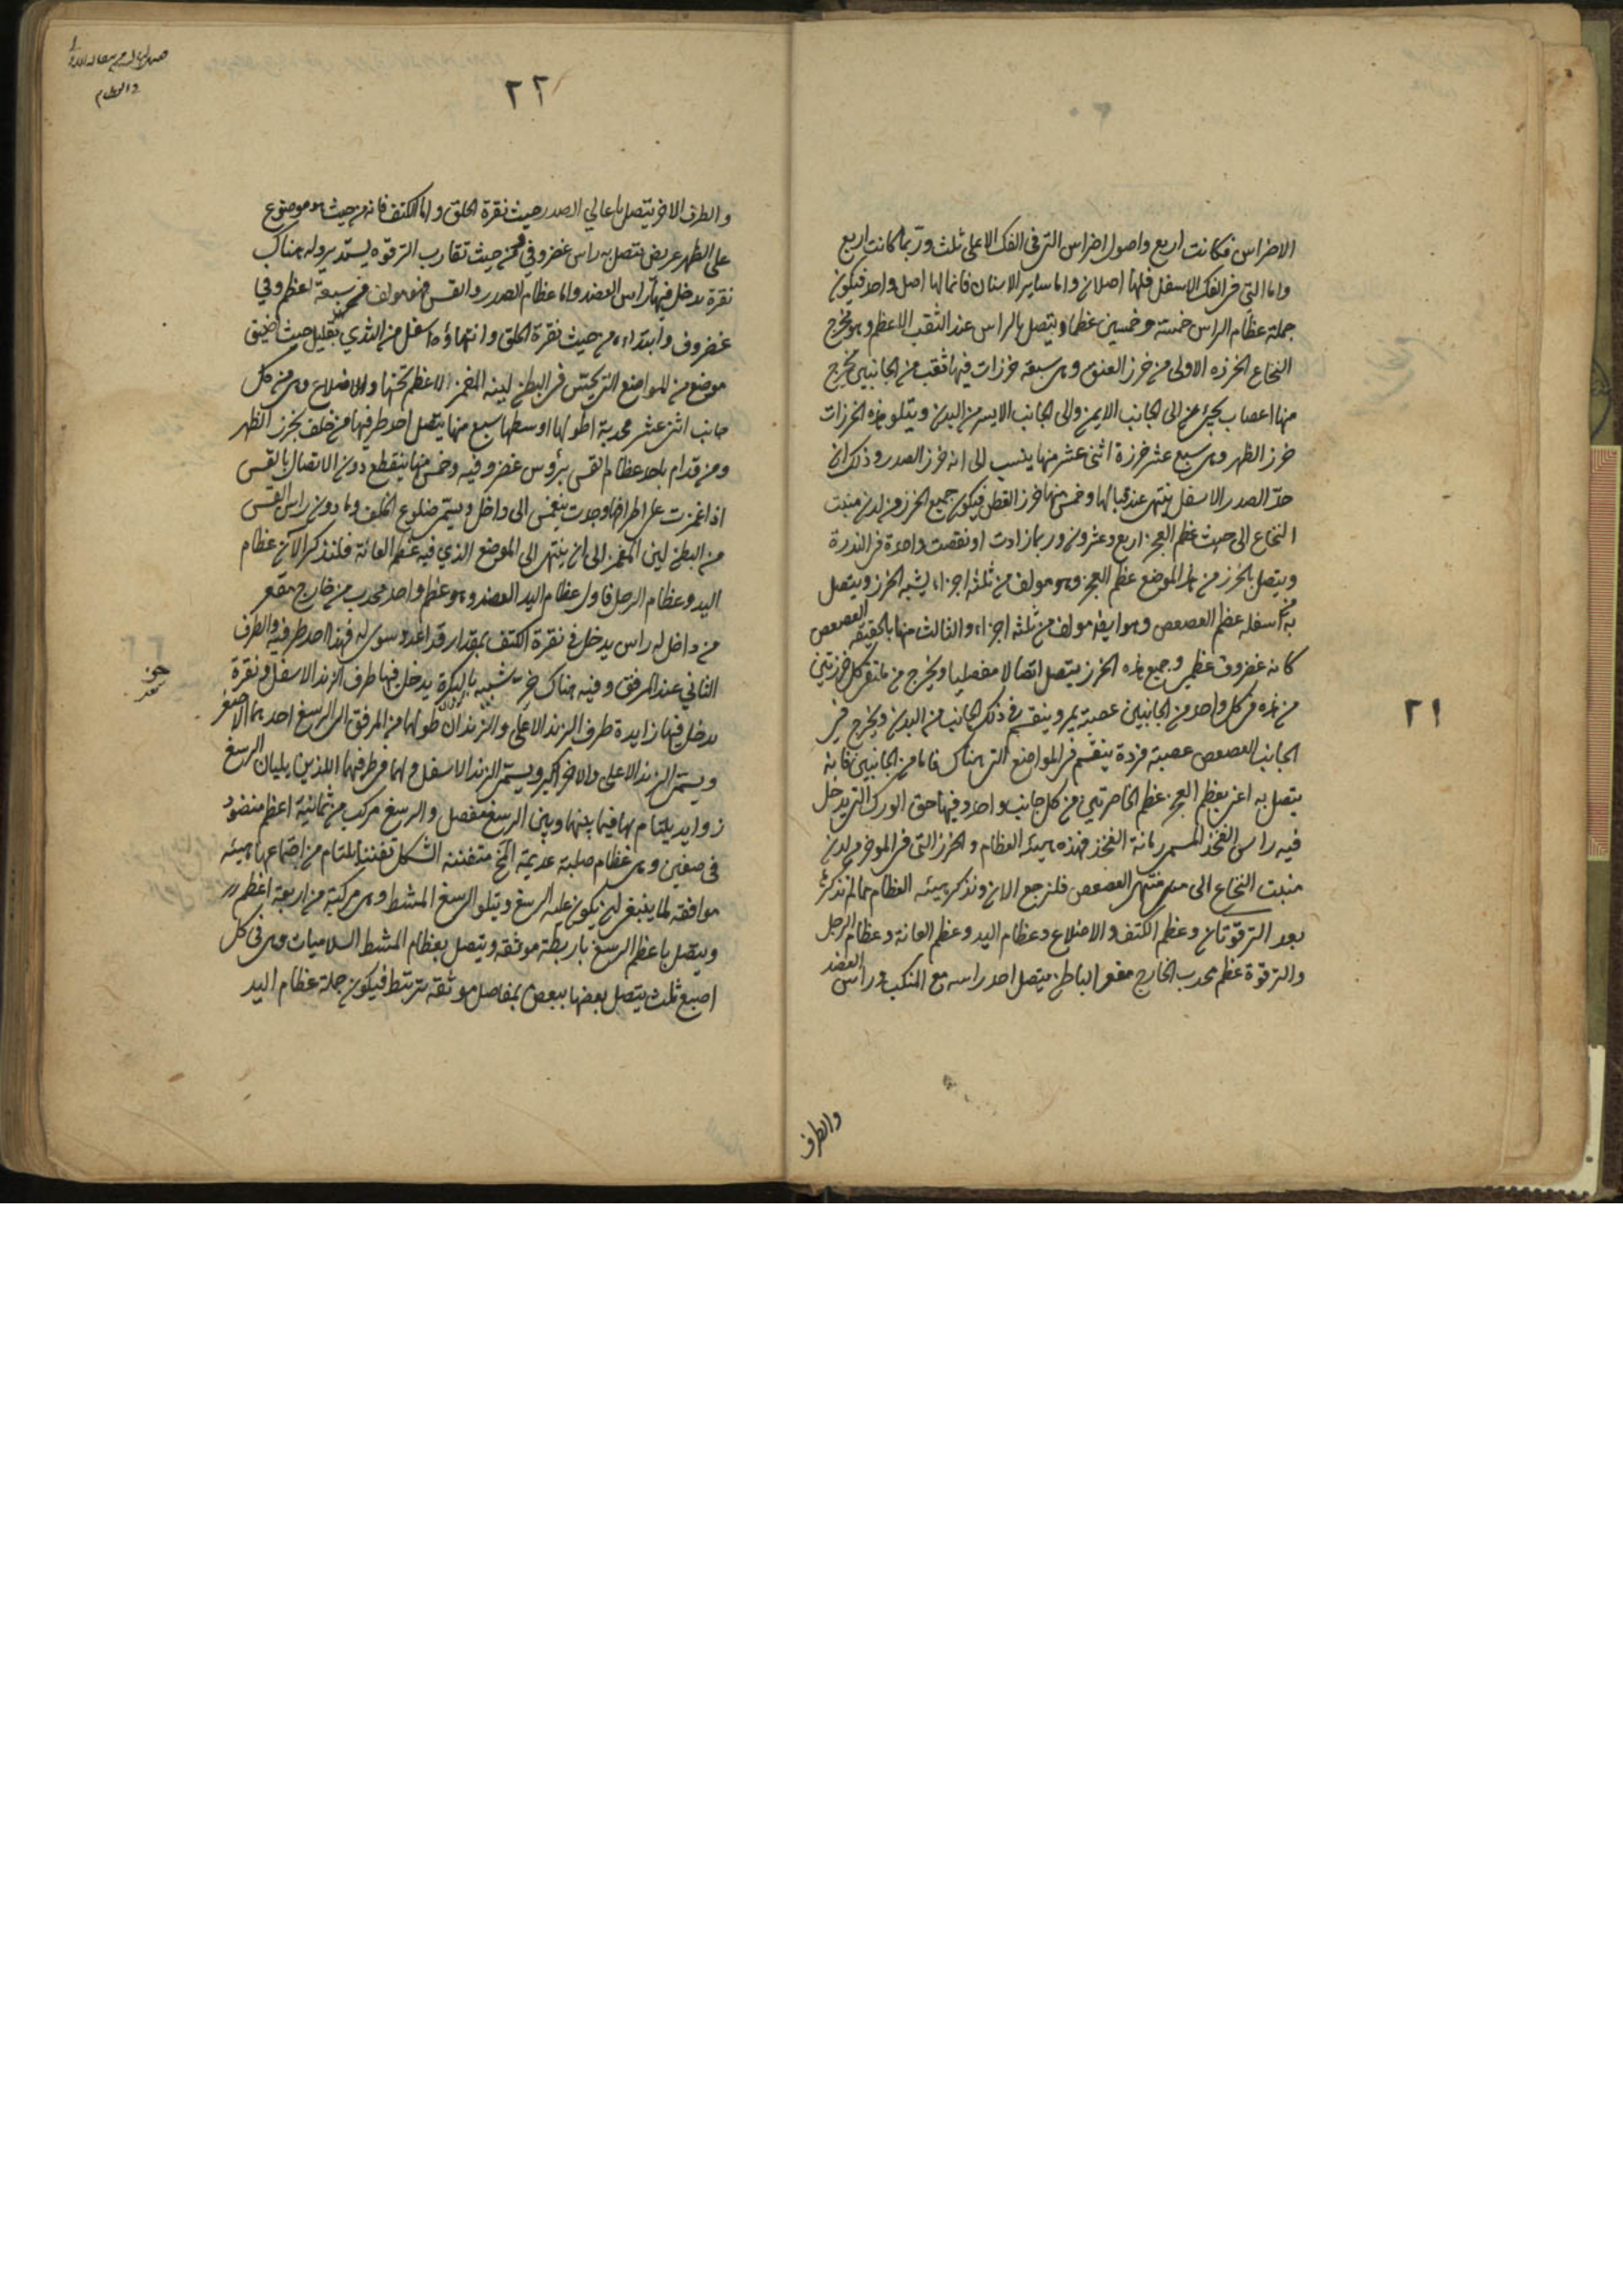 الاضراس فكانت اربع واصول اضراس التى فى الفك الاعلى ثلث وربما كانت اربع
واما التى فى الفك الاسفل فلها اصلان واما ساير الاسنان فانما لها اصل واحد فيكون
جملة عظام الراس خمسة وخمسين عظما ويتصل بالراس عند الثقب الاعظم وهو مخرج
النخاع الخرزه الاولى من خرز العنق وهى سبعة خرزات فيها ثقب من الجانبين يخرج
منها اعصاب يجئ الى الجانب الايمن والى الجانب الايسر من البدن ويتلو هذه الخرزات
خرز الظهر وهى سبع عشر خرزة اثنى عشر منها ينسب الى انه خرز الصدر وذلك ان
حد الصدر الاسفل ينتهى عند قبالها وخمس منها خرز القطن فيكون جميع الخرز من لدن منبت
النخاع الى حيث عظم العجز اربع وعشرون وربما زادت او نقصت واحدة فى الندرة
ويتصل بالخرز من هذا الموضع عظم العجز وهو مولف من ثلثه اجزاء يشبه الخرز ويتصل
به من اسفله عظم العصعص وهو ايضا مولف من ثلثه اجزاء والثالث منها بالحقيقه العصعص
كانه غضروف عظمى وجميع هذه الخرز يتصل اتصالا مفصليا ويخرج من ملتقى كل خرزتين
من هذه فى كل واحد من الجانبين عصبة يمر وينقسم فى ذلك الجانب من البدن ويخرج من
الجانب العصعص عصبة فردة ينقسم فى المواضع التى هناك فاما من الجانبين فانه
يتصل به اعنى بعظم العجز عظم الخاصرتين من كل جانب واحد وفيها حق الورك التى يدخل
فيه راس الفخذ المسمى رمانة الفخذ فهذه هيئة العظام والخرز التى فى الموخر من لدن
منبت النخاع الى منتهى العصعص فلنرجع الان ونذكر هيئه العظام مما لم نذكره
بعد الترقوتان وعظم الكتف والاضلاع وعظام اليد وعظم العانة وعظام الرجل
والترقوة عظم محدب الخارج مقعر الباطن يتصل احد راسه مع المنكب وراس العضد
والطرف
٢١
٢٢
والطرف الاخر يتصل باعالي الصدر حيث نقرة الحلق واما الكتف فانه من حيث هو موضوع
على الظهر عريض يتصل به راس غضروفي ومن حيث تقارب الترقوه يستدير وله هناك
نقرة يدخل فيها راس العضد واما عظام الصدر والقس فهو مولف من سبعة اعظم وفي
غضروف وابتداءه من حيث نقرة الحلق وانتهاؤه اسفل من الثدي بقليل حيث اضيق
موضع من المواضع التى يحتبس فى البطن لينه المغمز لا عظم تحتها والاضلاع وهى من كل
جانب اثنى عشر محدبة اطولها اوسطها سبع منها يتصل احد طرفيها من خلف بخرز الظهر
ومن قدام باحد عظام القس برؤس غضروفيه وخمس منها ينقطع دون الاتصال بالقس
اذا غمزت على اطرافها وجدت ينغمس الى داخل ويسمى ضلوع الخلف وما دون راس القس
من البطن لين المغمز الى ان ينتهى الى الموضع الذي فيه عظم العانة فلنذكر الآن عظام
اليد وعظام الرجل فاول عظام اليد العضد وهو عظم واحد محدب من خارج مقعر
من داخل له راس يدخل فى نقرة الكتف بمقدار قد اعد وسوى له فهذا احد طرفيه والطرف
الثاني عند المرفق وفيه هناك حز شبيه بالبكرة يدخل فيها طرف الزند الاسفل ونقرة
يدخل فيها زايدة طرف الزند الاعلى والزندان طولهما من المرفق الى الرسغ احدهما الاصغر
ويسمى الزند الاعلى والاخر اكبر ويسمى الزند الاسفل ولهما فى طرفهما اللذين يليان الرسغ
زوايد يلتام بها فيما بينها وبين الرسغ مفصل والرسغ مركب من ثمانية اعظم منضود
فى صفين وهى عظام صلبة عديمة المخ متفننه الشكل تفننا يلتام من اجتماعها هيئه
موافقه لما ينبغى ان يكون عليه الرسغ ويتلو الرسغ المشط وهى مركبة من اربعة اعظم
ويتصل باعظم الرسغ باربطة موثقه ويتصل بعظام المشط السلاميات وهى فى كل
اصبع ثلث يتصل بعضها ببعض بمفاصل موثقه يرتبط فيكون جملة عظام اليد